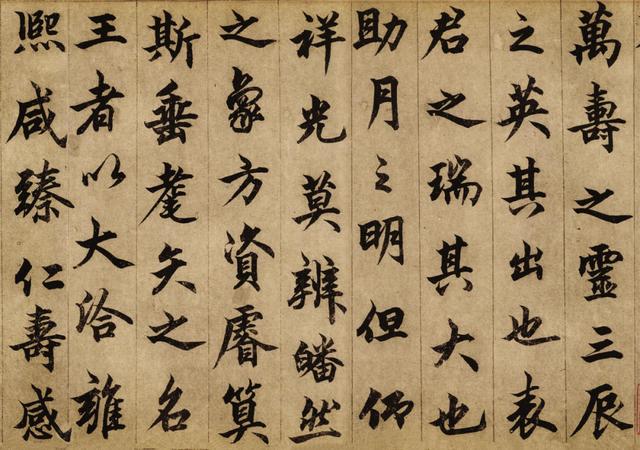 萬壽之靈三辰
之英其出也表
君之瑞其大也
助月之明但仰
祥光莫辨皤然
之象方資睿算
斯垂耄矣之名
王者以大洽雍
熙咸臻仁壽感